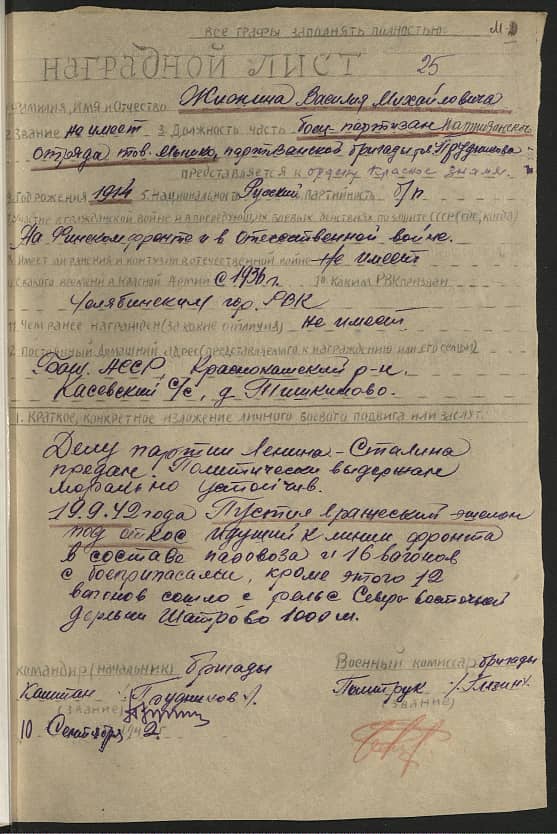 ВСЕ ГРАФЫ ЗАПОЛНЯТЬ ПОЛНОСТЬЮ
НАГРАДНОЙ ЛИСТ 25
Фамилия, Имя и Отчество Жионина Василия Михайловича
2. Звание не имеет 3. Должность часть боец-партизан партизанского
отряда тов. партизанской бригады т. Прудникова
представляется к ордену Красное знамя.
Год рожения 1914 5. Национальность Русский Партийность б/п
Участие в гражданской войне и в последующих боевых действиях по защите СССР (где, когда)
На Финском фронте и в Отечественной войне.
Имеет ли ранения и контузии в отечественной войне Не имеет
с какого времени в Красной Армии с 1936 г. 10 Каким РВК призван
Челябинским гор. РВК
11. Чем ранее награжден (за какие отличия) не имеет.
12. Постоянный домашний адрес (представляемого к награждению или его семьи)
Баш. АССР, Краснокамский р-н.
Касевский с/с, д.
1. Краткое, конкретное изложение личного боевого подвига или заслуг.
Делу партии Ленина-Сталина
предан. Политически выдержан
морально устойчив.
19.9.42 года Пустил вражеский эшелон
под откос идущий к линии фронта
в составе паровоза и 16 вагонов
с боеприпасами, кроме этого 12
вагонов сошло с рельс Северо восточной
деревни Шатрово 1000 м.
командир (начальник) бригады Военный комиссар бригады
Капитан /Прудников/. Политрук /Глезин/.
(звание) (звание)
10 Сентября 1942 г.